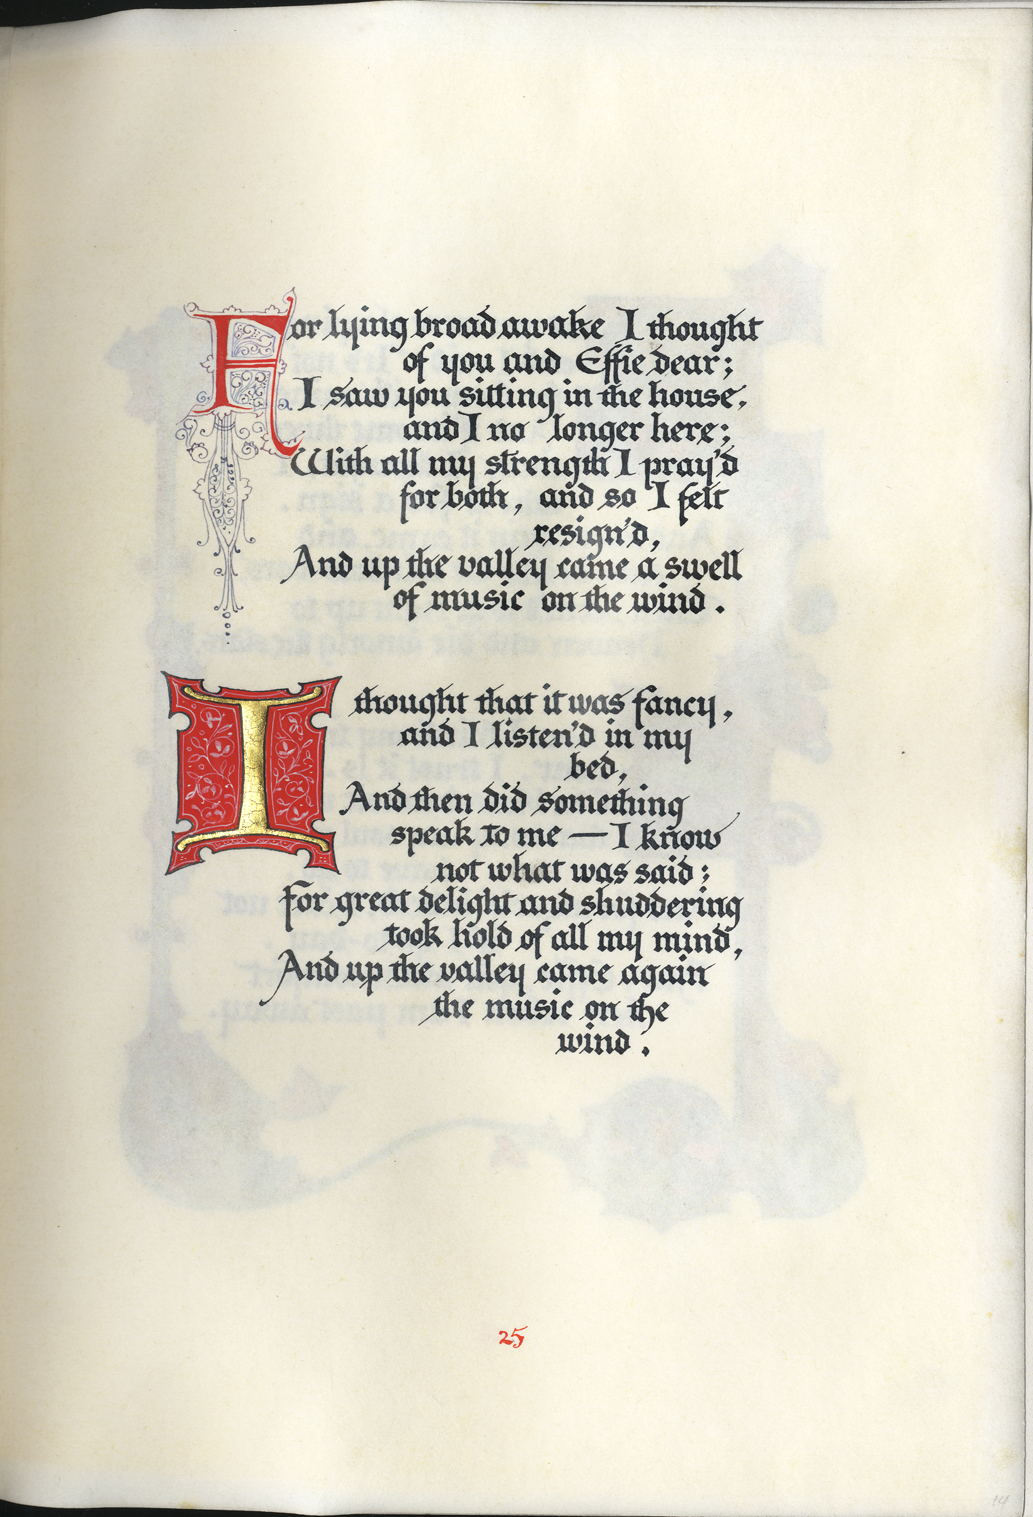 For lying broad awake I thought
of you and Effie dear;
I saw you sitting in the house,
and I no longer here;
With all my strength I pray'd
for both, and so I felt
resign'd,
And up the valley came a swell
of music on the wind.
I thought that it was fancy,
and I listen'd in my
bed,
And then did something
speak to me — I know
not what was said;
For great delight and shuddering
took hold of all my mind,
And up the valley came again
the music on the
wind.
25
14